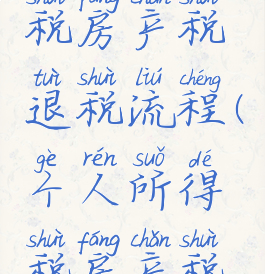 shuì fáng chǎn shuì
税房产税
tuì shuì liú chéng
退税流程(
gè rén suǒ dé
个人所得
shuì fáng chǎn shuì
税房产税